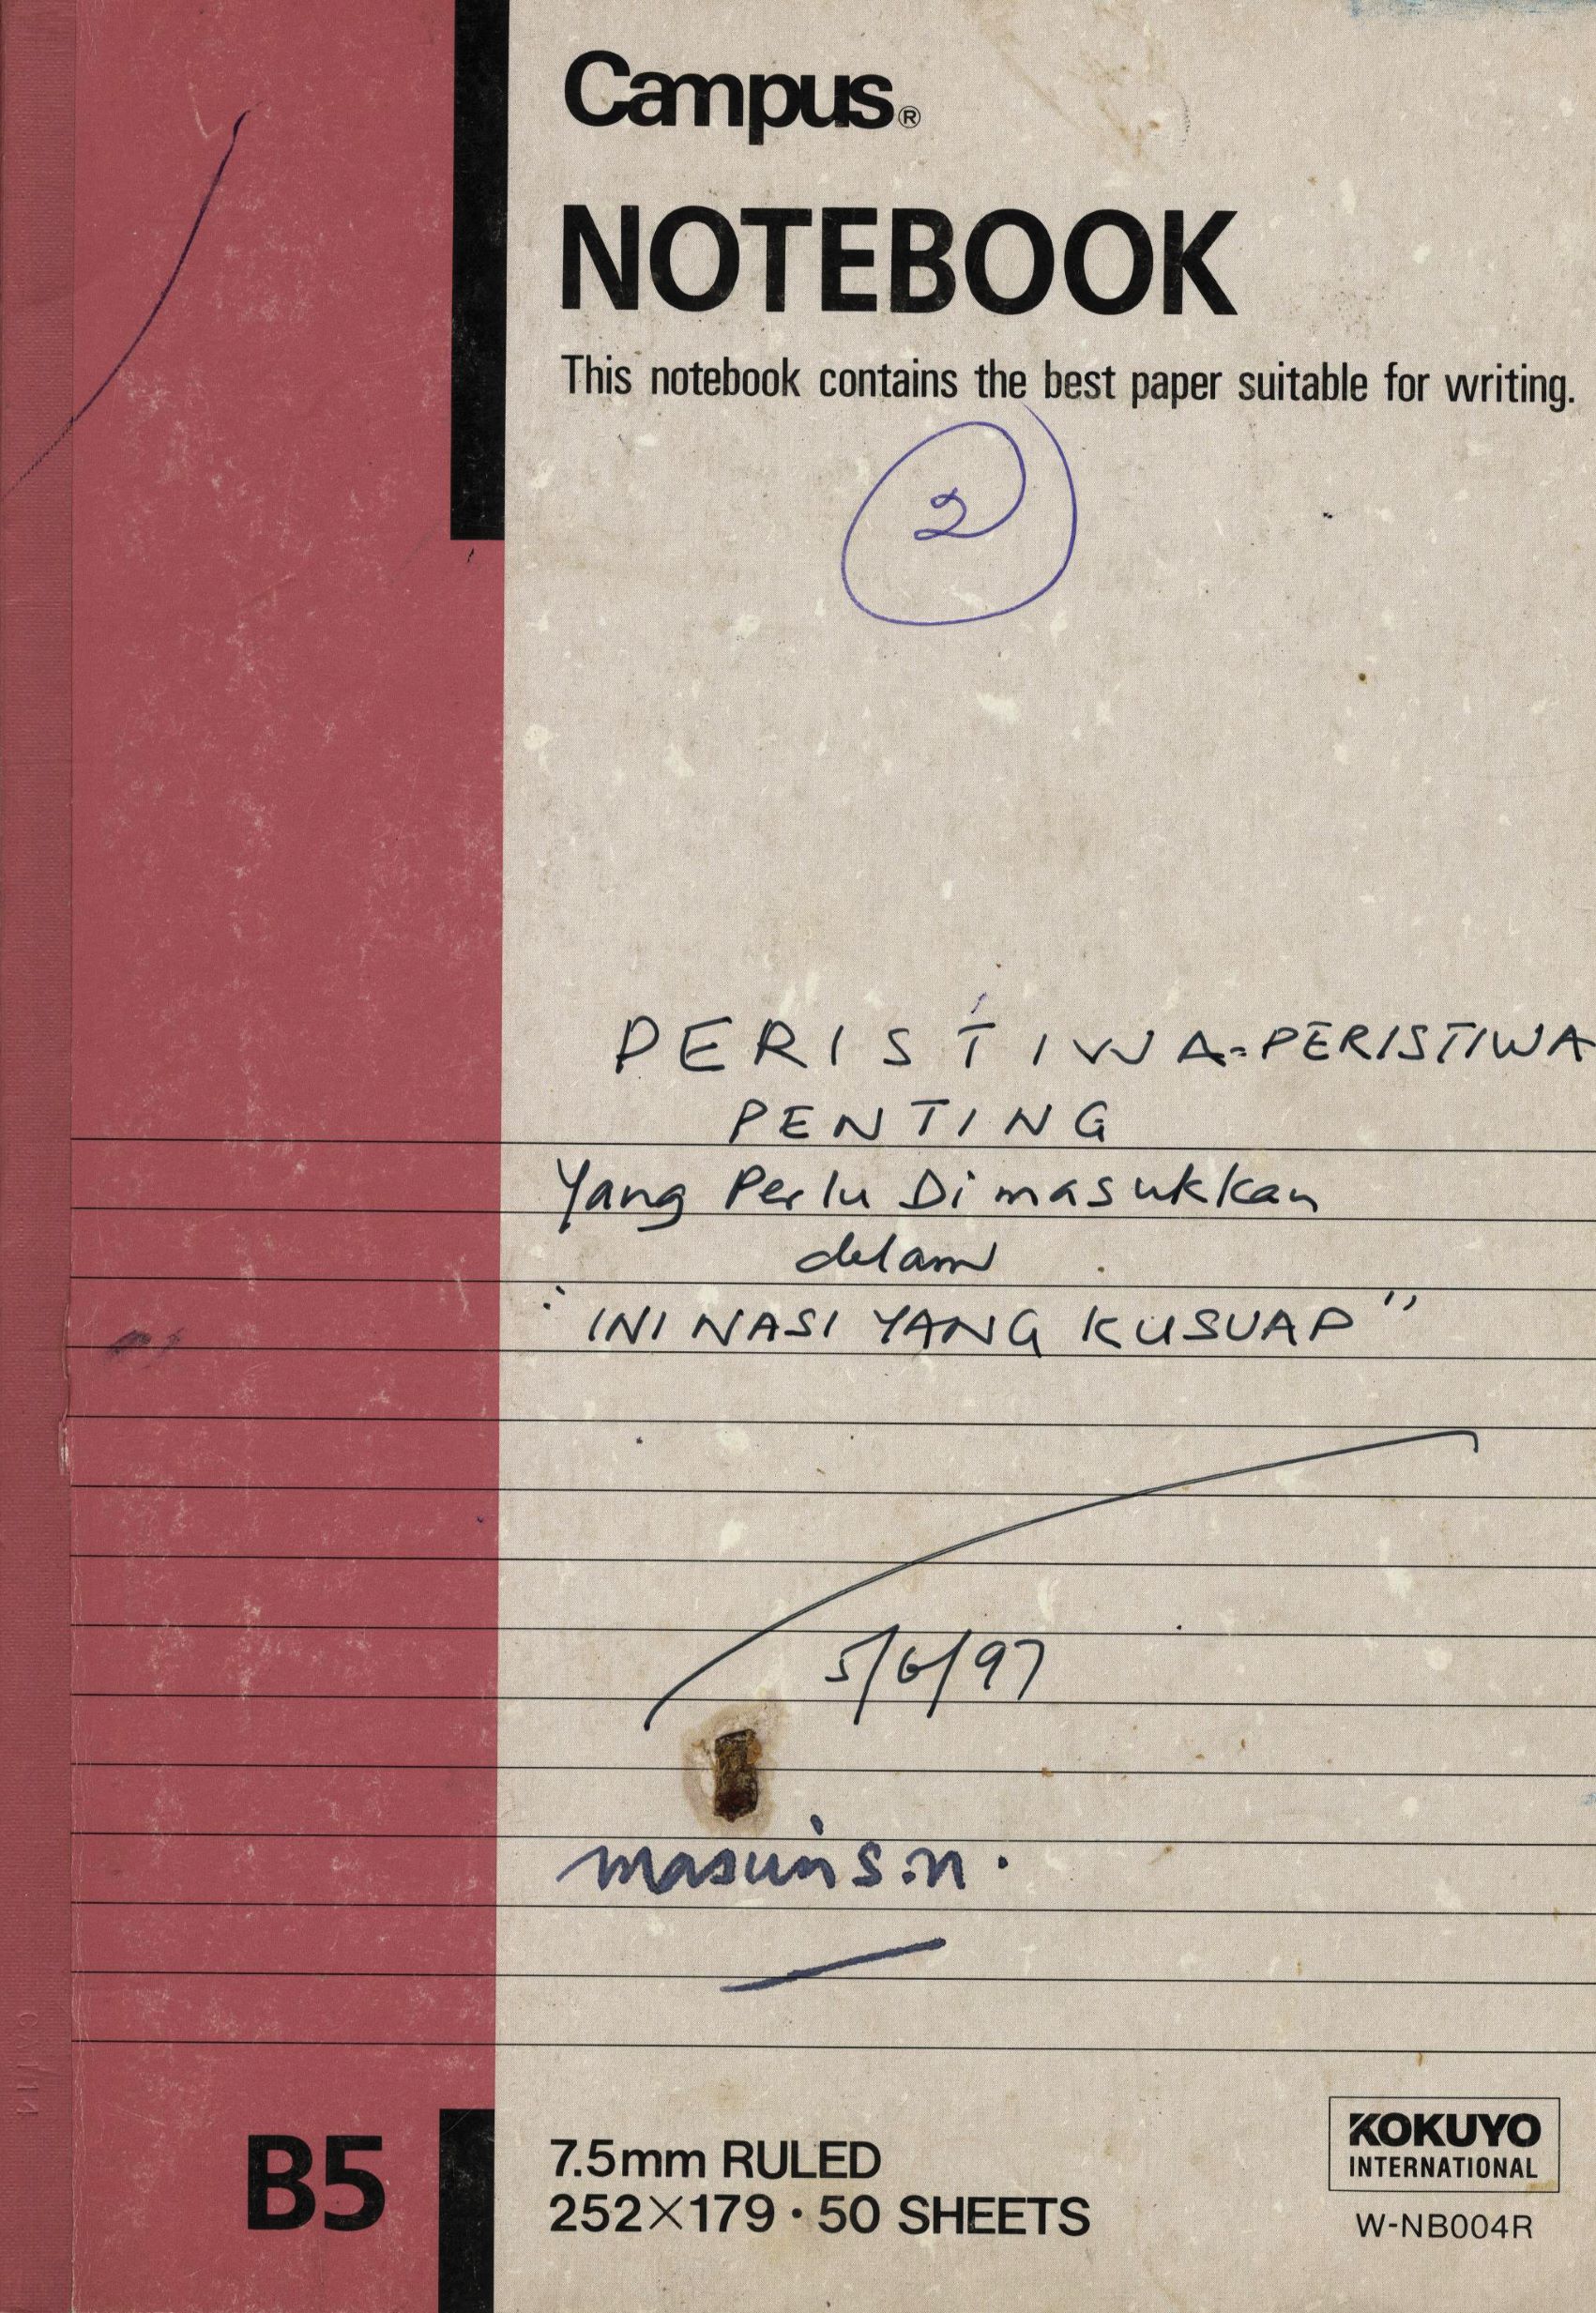 Campus®
NOTEBOOK
This notebook contains the best paper suitable for writing.
2
PERISTIWA-PERISTIWA
PENTING
Yang Perlu Dimasukkan
dalam
"INI NASI YANG KUSUAP"
5/6/97
masuri s.n.
B5
7.5mm RULED
252×179·50 SHEETS
KOKUYO
INTERNATIONAL
W-NB004R